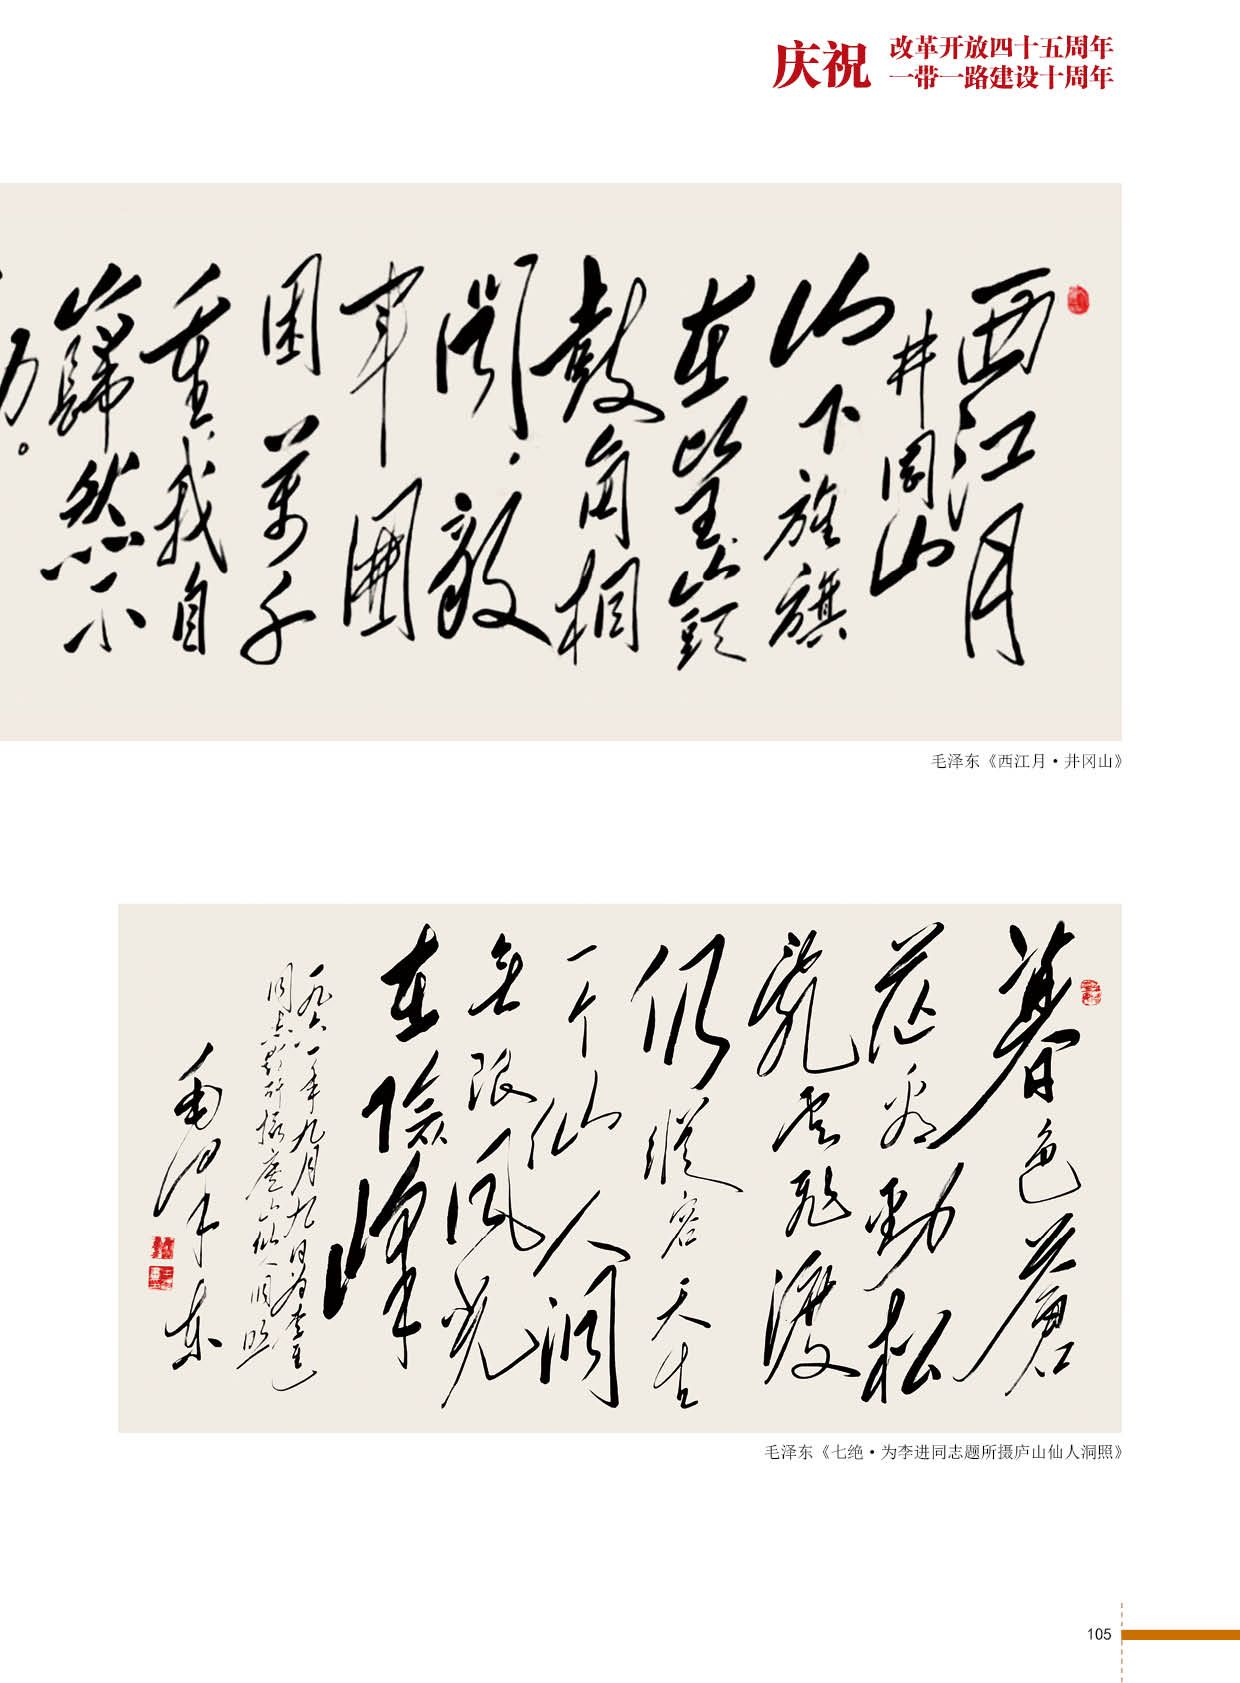 庆祝
改革开放四十五周年
一带一路建设十周年
西江月
井岡山
山下旌旗
在望山頭
鼓角相
聞。敵
軍圍
困萬千
重我自
巋然不
毛泽东《西江月·井冈山》
暮色蒼
茫看勁松
亂雲飛渡
仍縱容天生
一个仙人洞
無限風光
在險峰
一九六一年九月九日为李進
同志题所攝廬山仙人洞照
毛澤东
毛泽东《七绝·为李进同志题所摄庐山仙人洞照》
105